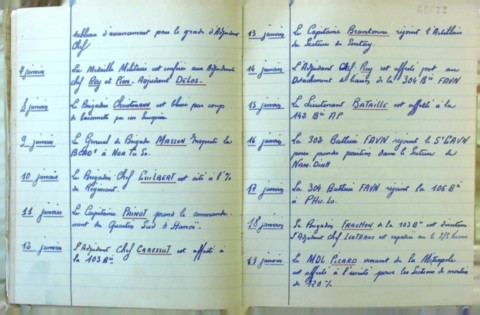 tableau d'avancement pour le grade d'Adjudant
Chef
4 janvier La Médaille Militaire est conférée aux Adjudants
chef Rey et Adjudant DELOS.
8 janvier Le Brigadier est blessé par coup
de baïonnette par un
9 janvier Le Général de Brigade MASSON inspecte la
à NHA
10 janvier Le Brigadier Chef GUILBERT est cité à l'
du Régiment.
11 janvier Le Capitaine PAINOT prend le commande-
ment du Quartier Sud à Hanoï.
12 janvier L'Adjudant Chef est affecté à
la 103 Bie
13 janvier Le Capitaine rejoint l'Artillerie
du Secteur de Sontay.
14 janvier L'Adjudant Chef Rey est affecté pour au
Détachement de base de la 304 Bie FAVN
15 janvier Le Lieutenant BATAILLE est affecté à la
142 Bie AP
16 janvier La 302 Batterie FAVN rejoint le 5e GAVN
pour prendre position dans le Secteur de
Nam Dinh
17 janvier La 304 Batterie FAVN rejoint la 106 Bie
à Phu Lo.
18 janvier Le Brigadier de la 103 Bie est
l'Adjudant Chef est rapatrié sur le
19 janvier Le MDL PICARD venant de la Métropole
est affecté à l'unité pour les Sections de mortiers
de 120